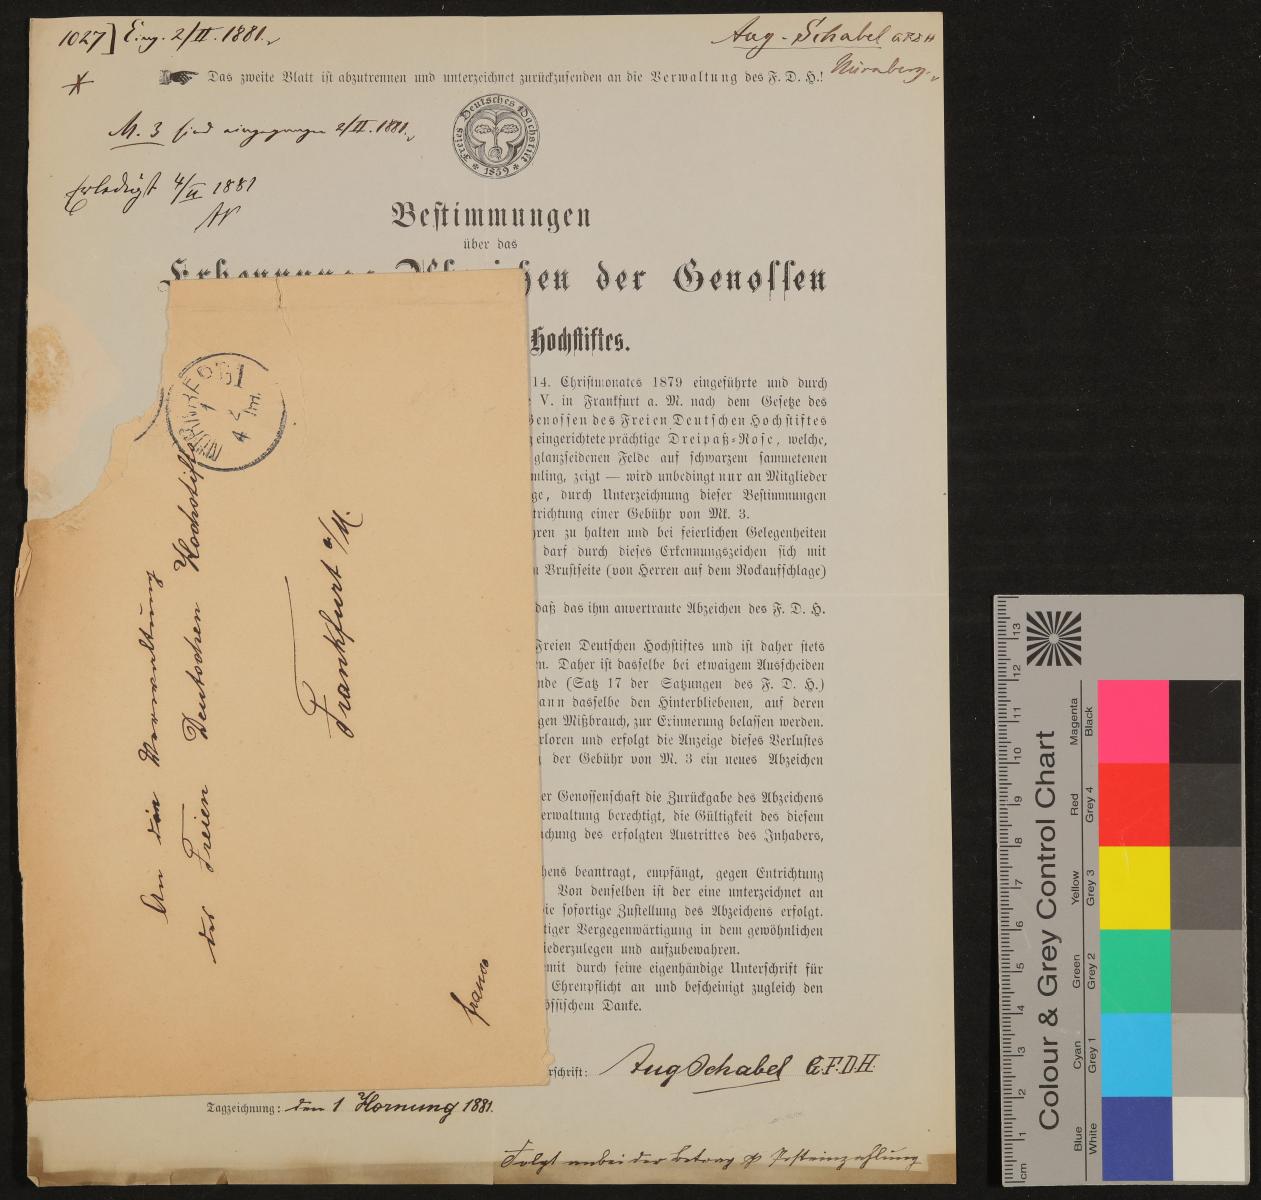 1027] Eing. 2/II. 1881.
Aug. Schabel G.F.D.H
Nürnberg.
Das zweite Blatt ist abzutrennen und unterzeichnet zurückzusenden an die Verwaltung des F. D. H.!
M. 3 sind eingegangen 2/II. 1881.
Freies Deutsches Hochstift
* 1859 *
Erledigt 4/II 1881
Bestimmungen
über das
Erkennungs-Abzeichen der Genossen
Hochstiftes.
14. Christmonates 1879 eingeführte und durch
V. in Frankfurt a. M. nach dem Gesetze des
Genossen des Freien Deutschen Hochstiftes
eingerichtete prächtige Dreipaß-Rose, welche,
glanzseidenen Felde auf schwarzem sammetenen
mling, zeigt — wird unbedingt nur an Mitglieder
ge, durch Unterzeichnung dieser Bestimmungen
trichtung einer Gebühr von Mk. 3.
hren zu halten und bei feierlichen Gelegenheiten
darf durch dieses Erkennungszeichen sich mit
n Brustseite (von Herren auf dem Rockaufschlage)
daß das ihm anvertraute Abzeichen des F. D. H.
Freien Deutschen Hochstiftes und ist daher stets
n. Daher ist dasselbe bei etwaigem Ausscheiden
nde (Satz 17 der Satzungen des F. D. H.)
ann dasselbe den Hinterbliebenen, auf deren
gen Mißbrauch, zur Erinnerung belassen werden.
rloren und erfolgt die Anzeige dieses Verlustes
der Gebühr von M. 3 ein neues Abzeichen
er Genossenschaft die Zurückgabe des Abzeichens
erwaltung berechtigt, die Gültigkeit des diesem
chung des erfolgten Austrittes des Inhabers,
hens beantragt, empfängt, gegen Entrichtung
Von denselben ist der eine unterzeichnet an
ie sofortige Zustellung des Abzeichens erfolgt.
tiger Vergegenwärtigung in dem gewöhnlichen
iederzulegen und aufzubewahren.
mit durch seine eigenhändige Unterschrift für
Ehrenpflicht an und bescheinigt zugleich den
össischem Danke.
rschrift: Aug Schabel G.F.D.H.
Tagzeichnung: den 1 Hornung 1881.
Folgt anbei der Betrag p Posteinzahlung
NÜRNBERG I
1
2
4
Nm.
An die Verwaltung
des Freien Deutschen Hochstiftes
Frankfurt a/M.
franco
Colour & Grey Control Chart
Blue Cyan Green Yellow Red Magenta
White Grey 1 Grey 2 Grey 3 Grey 4 Black
cm 1 2 3 4 5 6 7 8 9 10 11 12 13